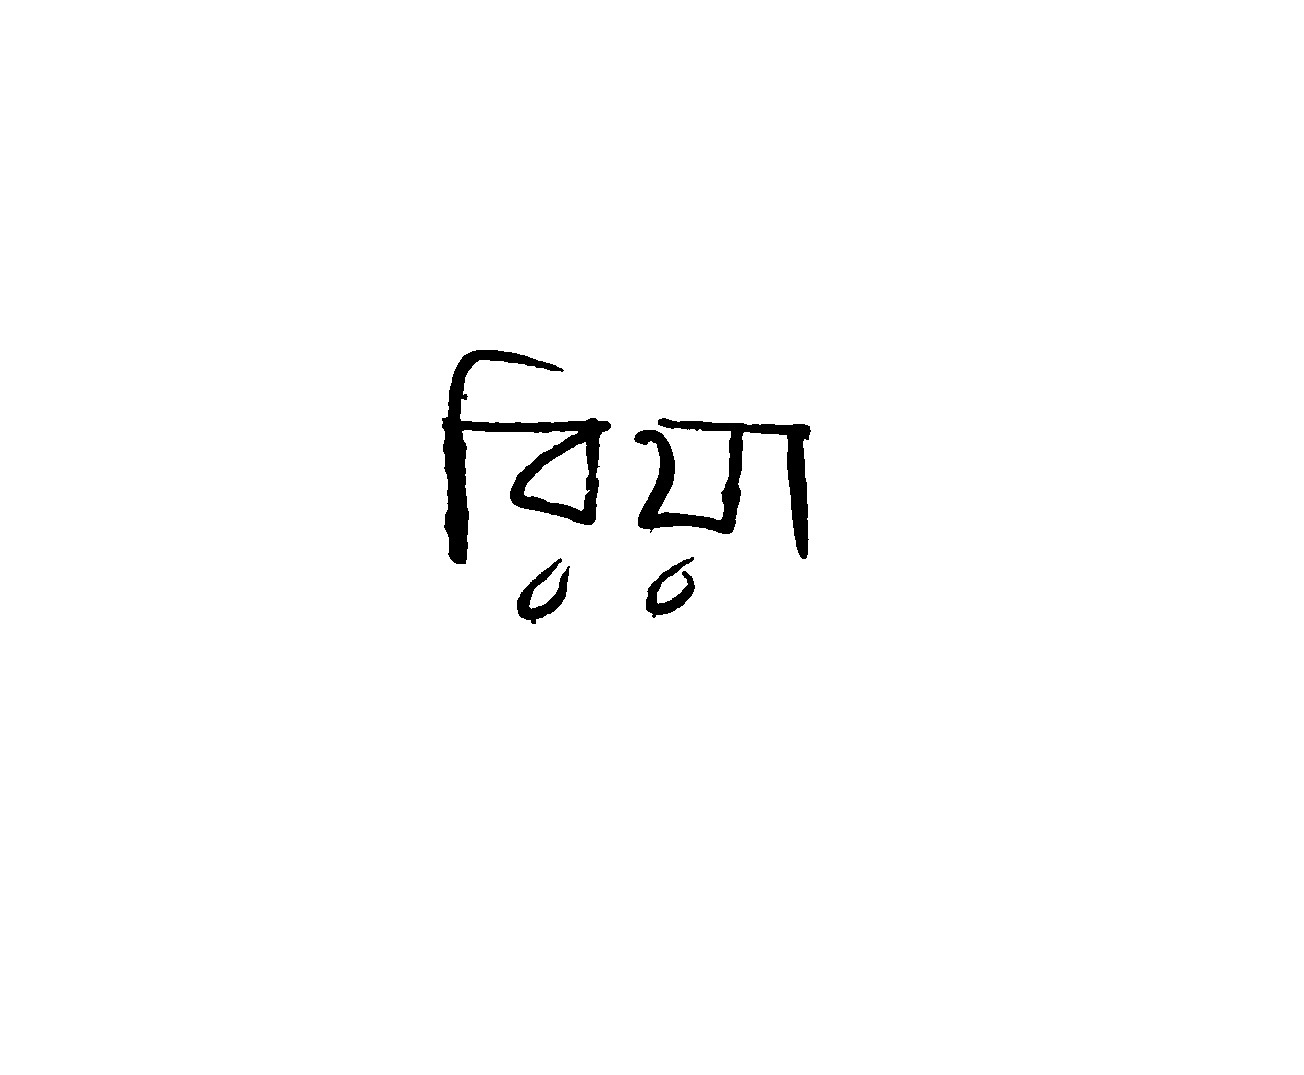 রিয়া